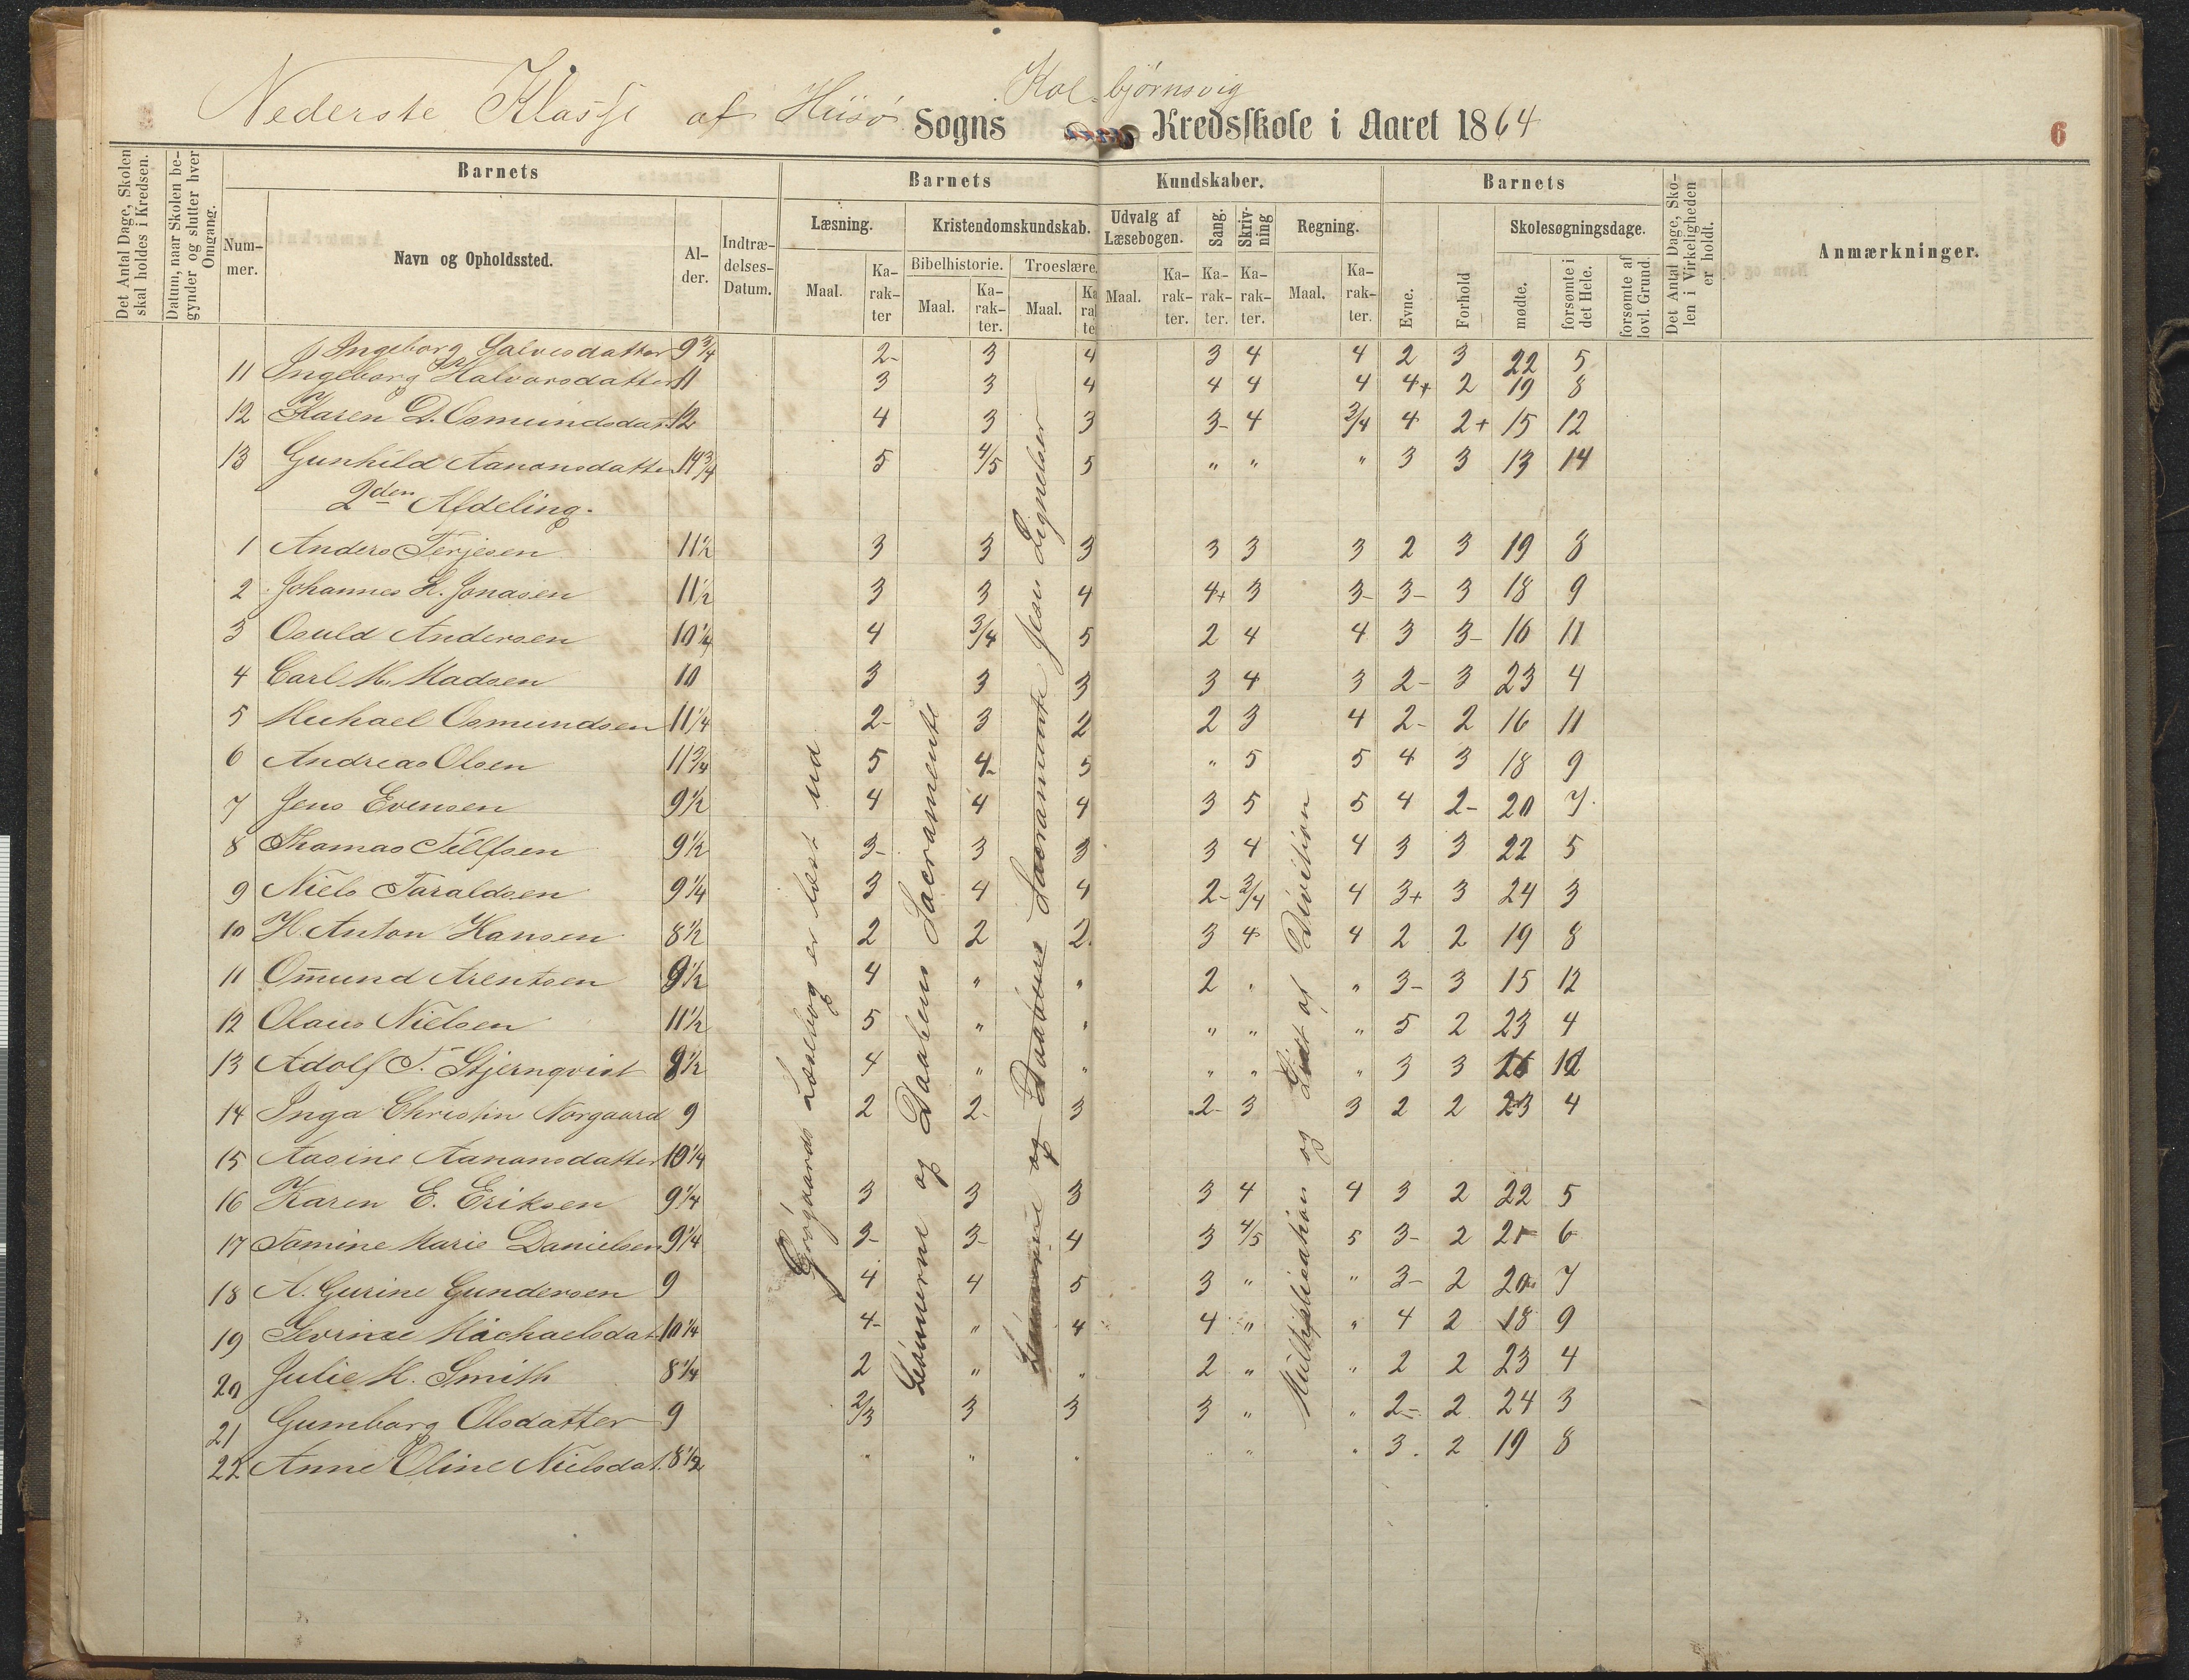 Kolbjørnsvig
Nederste Klasse af Hiisø Sogns Kredsskole i Aaret 1864
6
Det Antal Dage, Skolen skal holdes i Kredsen.
Datum, naar Skolen begynder og slutter hver Omgang.
Barnets
Barnets Kundskaber.
Barnets
Det Antal Dage, Skolen i Virkeligheden er holdt.
Anmærkninger.
Nummer.
Navn og Opholdssted.
Alder.
Indtrædelses-Datum.
Læsning.
Kristendomskundskab.
Udvalg af Læsebogen.
Sang.
Skrivning
Regning.
Evne.
Forhold
Skolesøgningsdage.
Bibelhistorie.
Troeslære.
Maal.
Karakter
Maal.
Karakter.
Maal.
Karakter
Maal.
Karakter.
Karakter.
Karakter.
Maal.
Karakter.
mødte.
forsømte i det Hele.
forsømte af lovl. Grund.
Ingeborg Salvesdatter 9 3/4 2- 3 4 3 4 4 2 3 22 5
11 Ingeborg Halvorsdatter 11 3 3 4 4 4 4 4+ 2 19 8
12 Karen D. Osmundsdat. 12 4 3 3 3- 4 3/4 4 2+ 15 12
13 Gunhild Aanonsdatter 14 3/4 5 4/5 5 " " " 3 3 13 14
2den Afdeling.
1 Anders Terjesen 11 1/2 3 3 3 3 3 3 2 3 19 8
2 Johannes H. Jonasen 11 1/2 3 3 4 4+ 3 3- 3- 3 18 9
3 Osuld Andersen 10 1/4 4 3/4 5 2 4 4 3 3- 16 11
4 Carl M. Madsen 10 3 3 3 3 4 3 2- 3 23 4
5 Michael Osmundsen 11 1/4 2- 3 2 2 3 4 2- 2 16 11
6 Andreas Olsen 11 3/4 5 4- 5 " 5 5 4 3 18 9
7 Jens Evensen 9 1/2 4 4 4 3 5 5 4 2- 20 7
8 Thomas Tellfsen 9 1/2 3- 3 3 3 4 4 3 3 22 5
9 Niels Taraldsen 9 1/4 3 4 4 2- 3/4 4 3+ 3 24 3
10 H. Anton Hansen 8 1/2 2 2 2 3 4 4 2 2 19 8
11 Omund Arentsen 9 1/2 4 " " 2 " " 3- 3 15 12
12 Olaus Nielsen 11 1/2 5 " " " " " 5 2 23 4
13 Adolf T. Stjernqvist 8 1/2 4 " " " " " 3 3
14 Inga Christin Norgaard 9 2 2- 3 2- 3 3 2 2 23 4
15 Aasine Aanonsdatter 10 1/4
16 Karen E. Eriksen 9 1/4 3 3 3 3 4 4 3 2 22 5
17 Tomine Marie Danielsen 9 1/4 3- 3- 4 3 4/5 5 3- 2 21 6
18 A. Gurine Gundersen 9 4 4 5 3 " " 3- 2 20 7
19 Sevrine Michaelsdat 10 1/4 4- " 4 4 " " 4 2 18 9
20 Julie M. Smith 8 1/4 2 " " 2 " " 2 2 23 4
21 Gumborg Olsdatter 9 2/3 3 3 3 " " 2- 2 24 3
22 Anne Oline Nielsdat. 8 1/2 " " " " " " 3 2 19 8
Grøgaards Læsebog er læst ud
Lømmerne og Daabens Sacramente
og Daabens Sacramente Jesu Lignelser
Multiplication og Lidt af Division